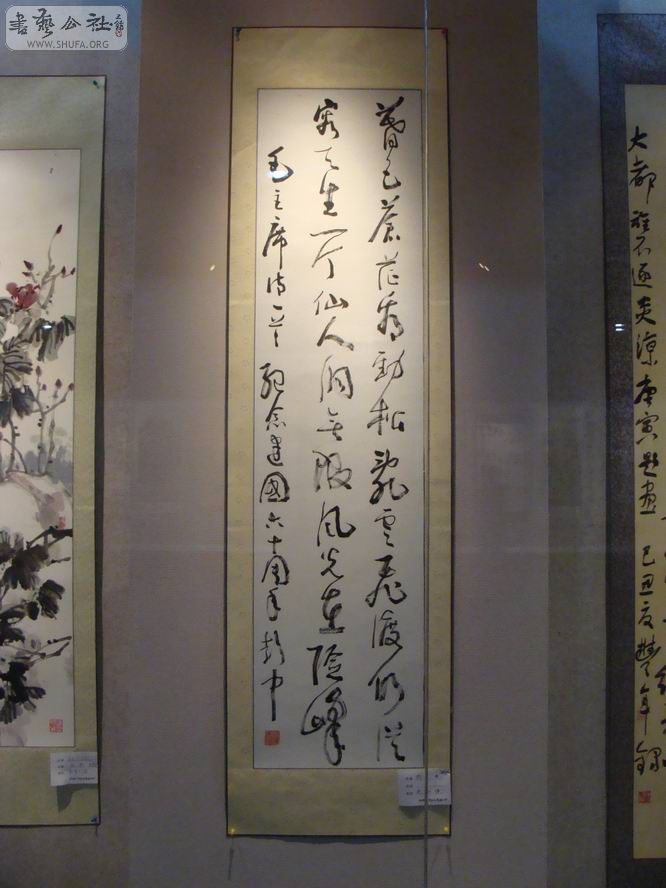 書藝公社
WWW.SHUFA.ORG
暮色蒼茫看勁松亂雲飛渡仍從
容天生一个仙人洞無限風光在險峰
毛主席詩一首 紀念建國六十周年 彭中
大都誰不逐炎涼庚寅題畫 己丑夏